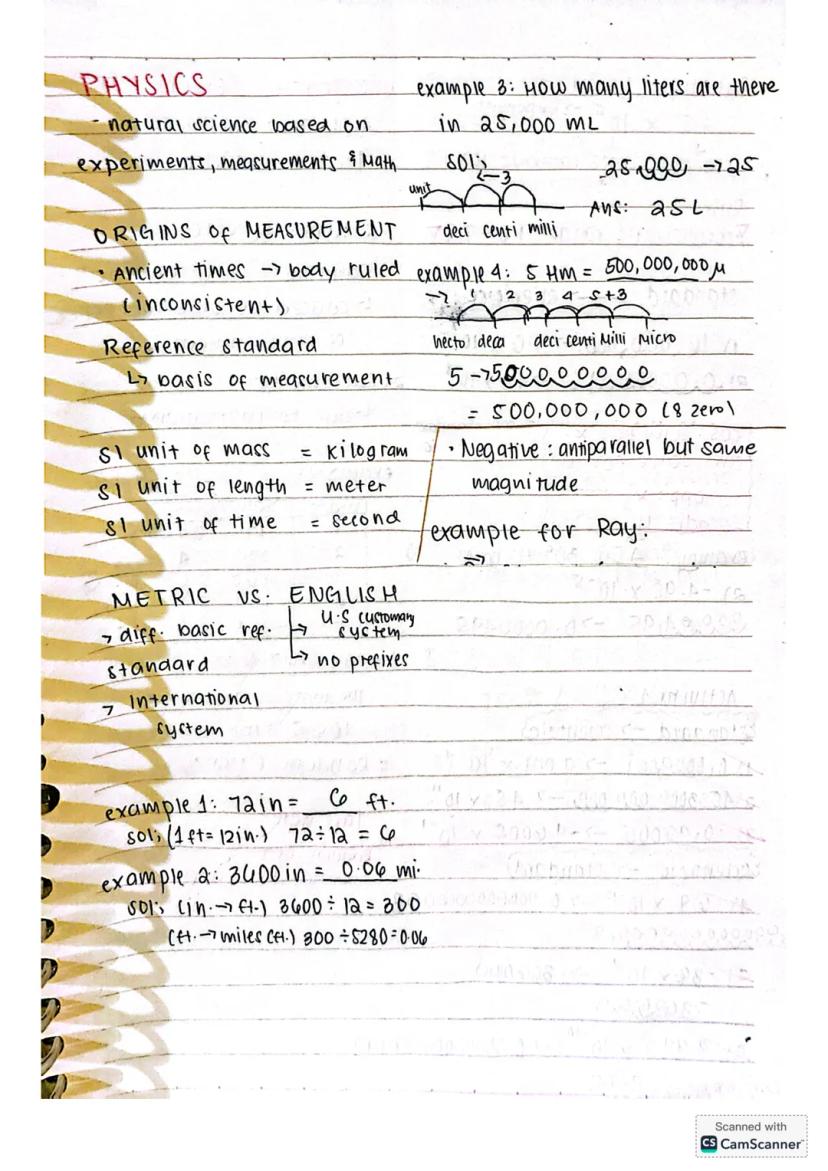 PHYSICS
- natural science based on
experiments, measurements & Math
ORIGINS Of MEASUREMENT
• Ancient times → body ruled
(inconsistent)
Reference standard
↳ basis of measurement
SI unit of mass = kilogram
SI unit of length = meter
SI unit of time = second
METRIC VS. ENGLISH
> diff. basic ref.
standard
→ U.S customary
system
↳ no prefixes
> International
system
example 1: 72 in = 6 ft.
sol; (1 ft = 12 in.) 72 ÷ 12 = 6
example 2: 3600 in = 0.06 mi.
sol; (in. → ft.) 3600 ÷ 12 = 300
(ft. → miles (ft.) 300 ÷ 5280 = 0.06
example 3: How many liters are there
in 25,000 mL
sol; 25,000 → 25
←3
unit
deci centi milli
Ans: 25 L
example 4: 5 Hm = 500,000,000 μ
→ 1 2 3 4 5+3
hecto deca deci centi Milli Micro
5 → 500000000
= 500,000,000 (8 zero)
• Negative: antiparallel but same
magnitude
example for Ray:
Scanned with
CS CamScanner